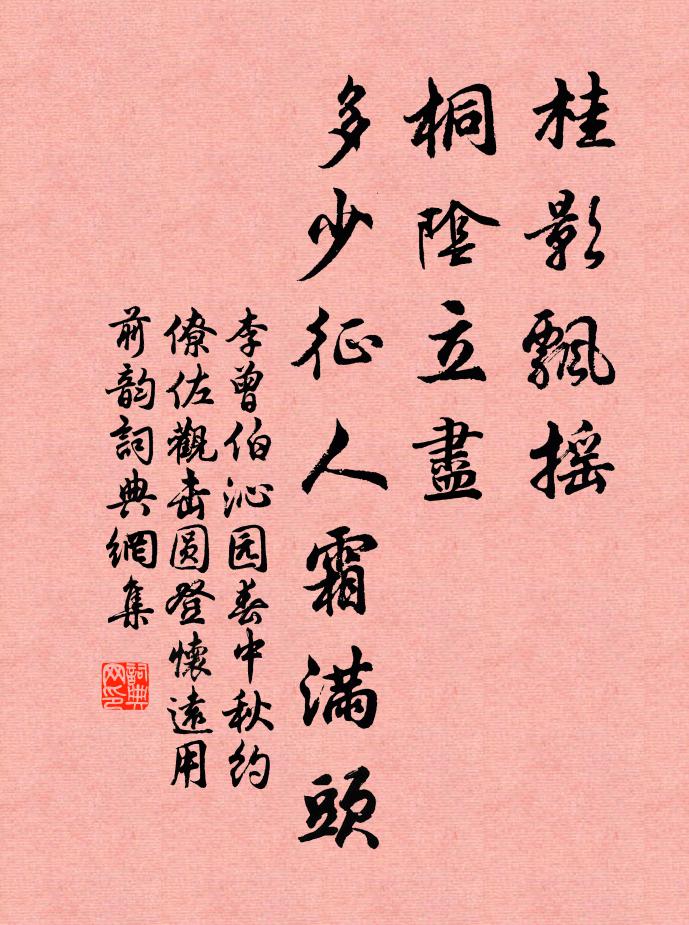 桂影飄摇
桐陰立盡
多少征人霜滿頭
李曾伯沁园春中秋约
僚佐觀击圆登懷遠用
前韵詞典網集
詞典网印